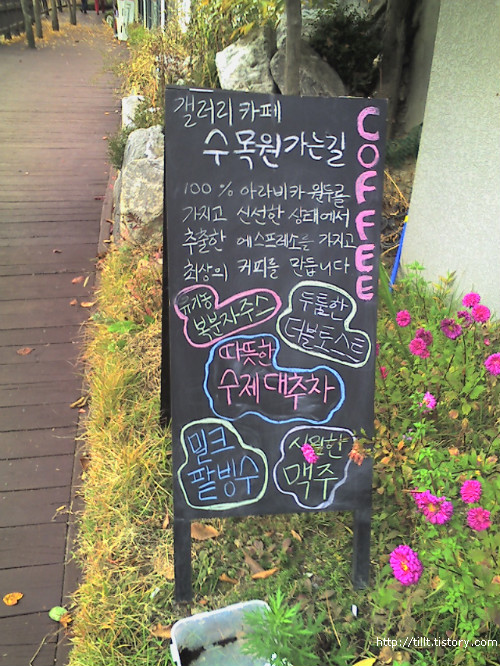 갤러리 카페
수목원 가는길
COFFEE
100 % 아라비카 원두를
가지고 신선한 상태에서
추출한 에스프레소를 가지고
최상의 커피를 만듭니다
유기농
복분자주스
두툼한
더블토스트
따뜻한
수제 대추차
밀크
팥빙수
시원한
맥주
http://tillt.tistory.com